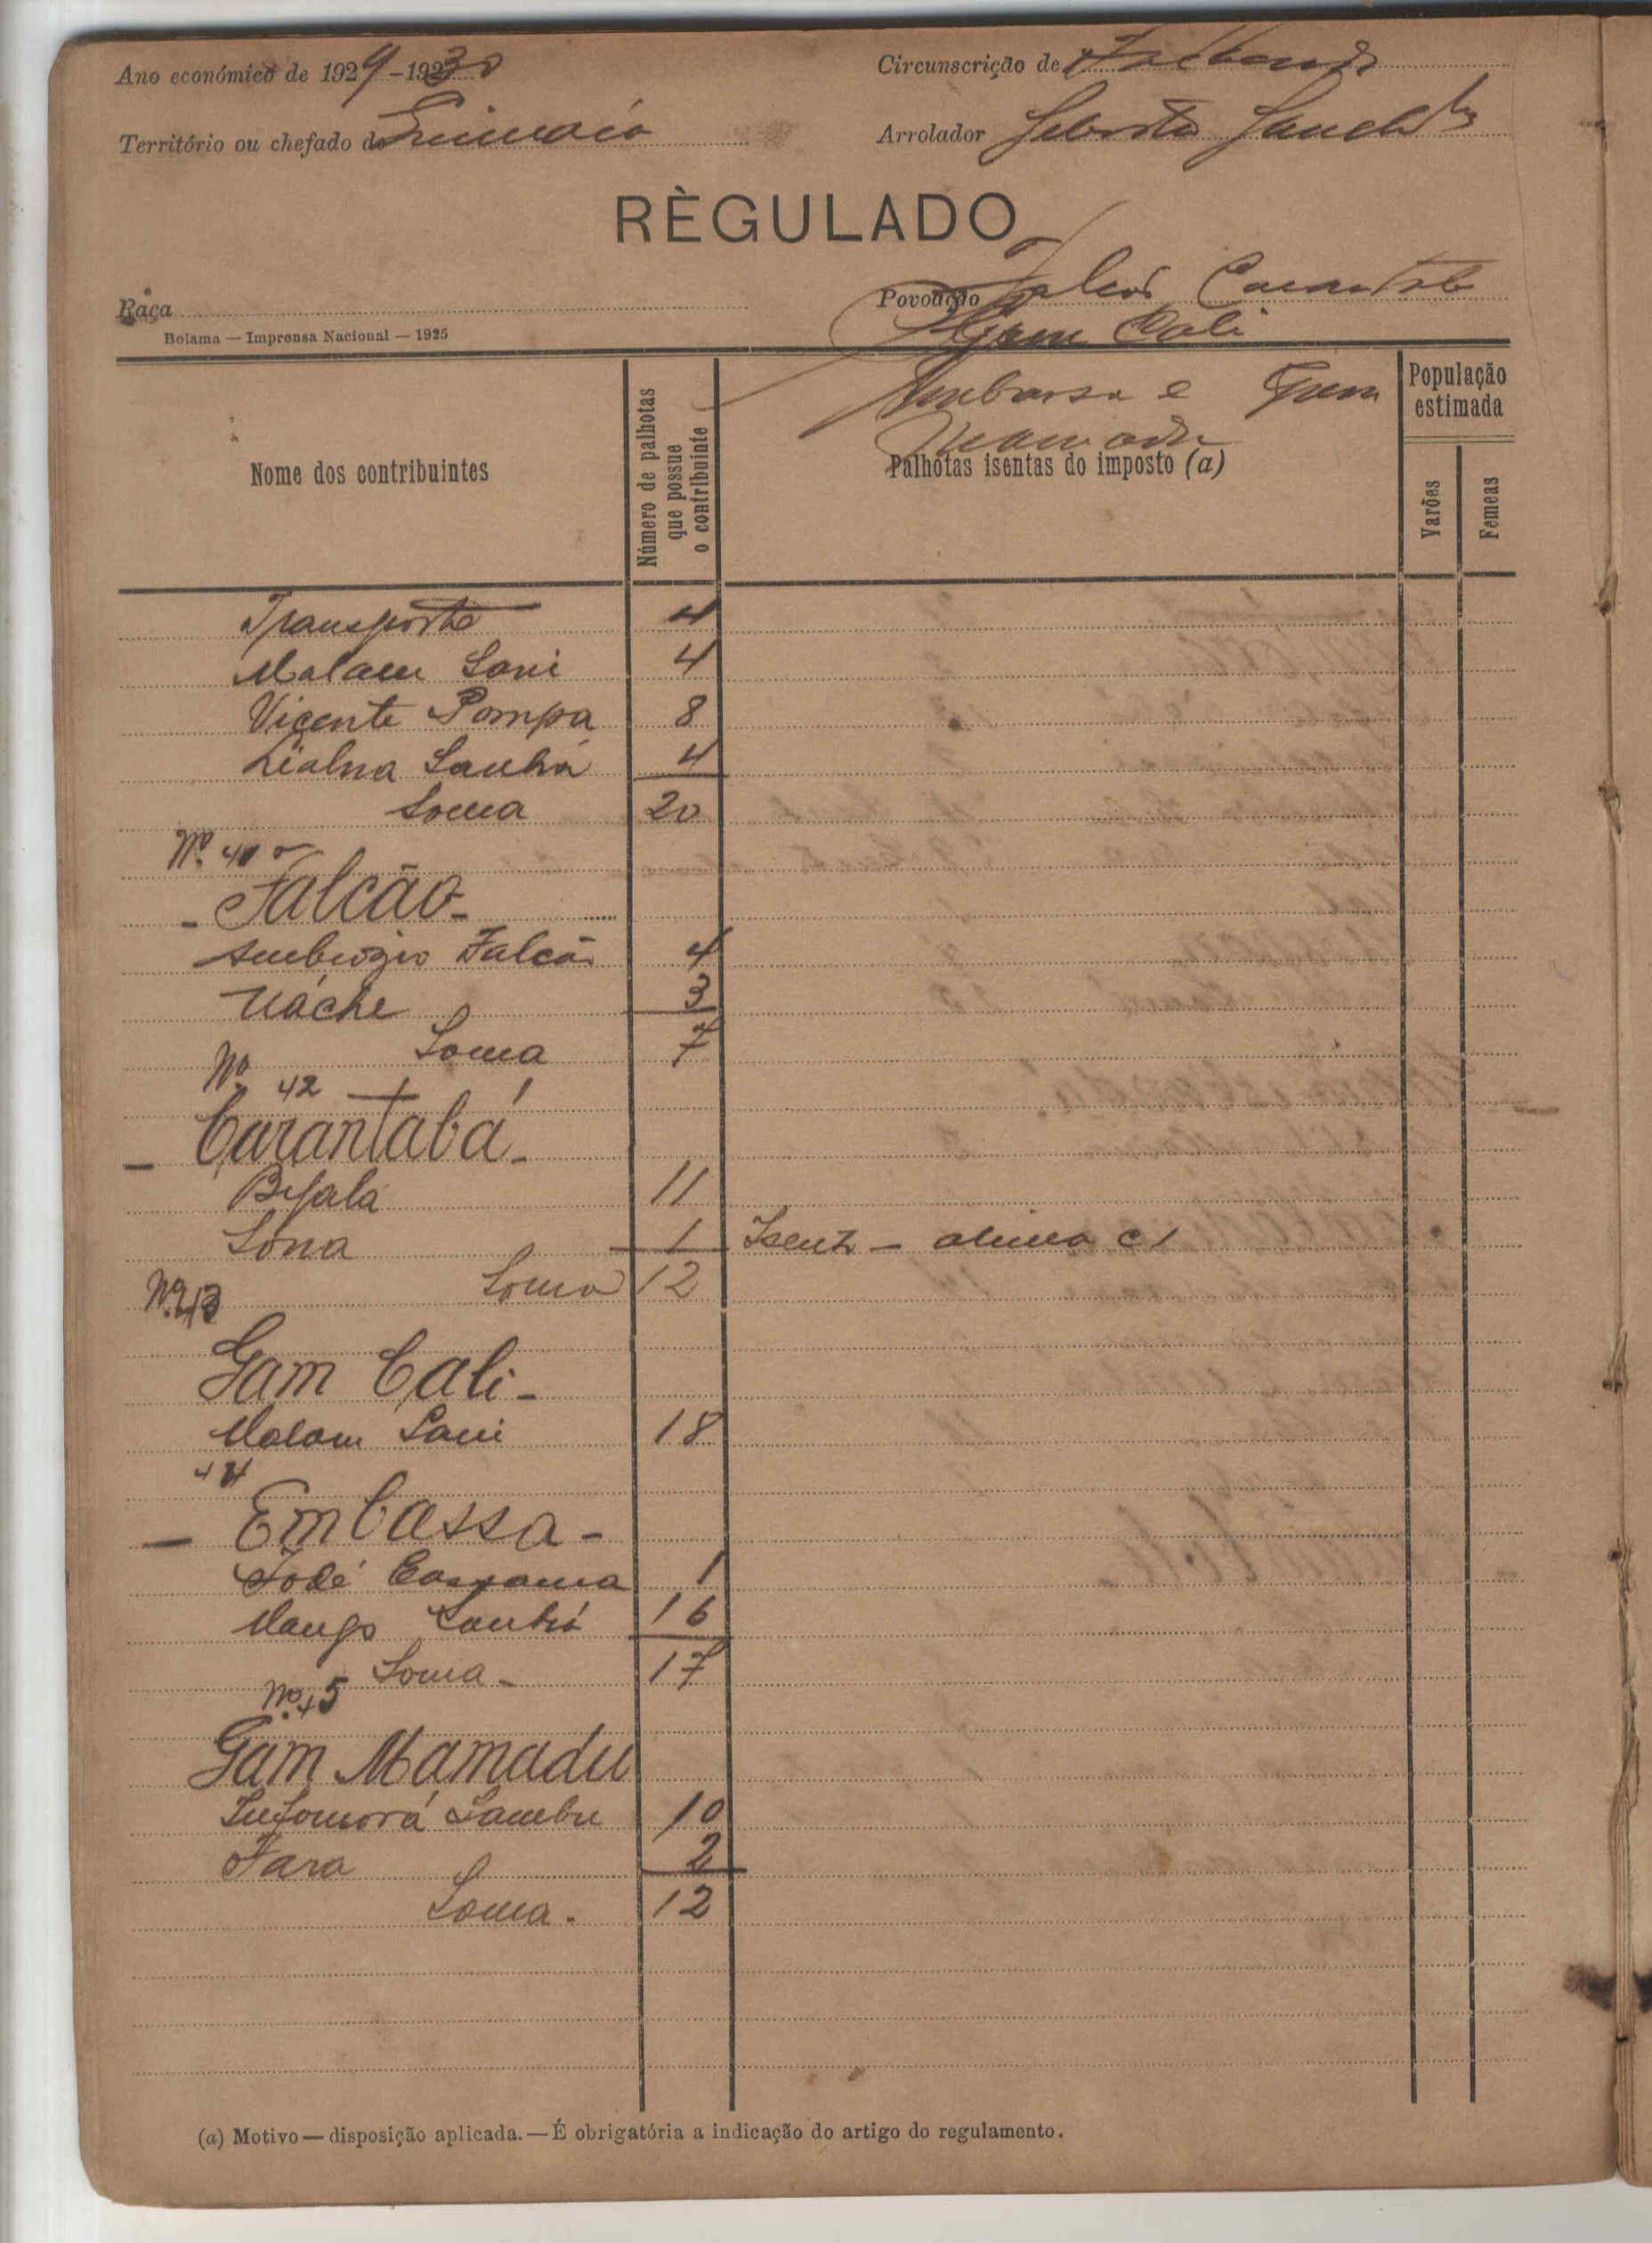 Ano económico de 1929-1930
Circunscrição de
Território ou chefado de
Arrolador
RÈGULADO
Raça
Povoação Falcão Carantabá
Gam Cali
Bolama — Imprensa Nacional — 1925
Embassa e Gam
Mamadu
Nome dos contribuintes
Número de palhotas
que possue
o contribuinte
Palhotas isentas do imposto (a)
População
estimada
Varões
Femeas
Transporte 4
Malam Sani 4
Vicente Pompa 8
Sanhá 4
Soma 20
Nº 41
- Falcão -
Ambrózio Falcão 4
Uáche 3
Soma 7
Nº 42
- Carantabá -
Bijala 11
Sona 1 Isento -
Soma 12
Nº 43
Gam Cali -
Malam Sani 18
44
- Embassa -
Fodé 1
Sanhá 16
Soma - 17
Nº 45
Gam Mamadu
Sambu 10
Fara 2
Soma - 12
(a) Motivo — disposição aplicada. — É obrigatória a indicação do artigo do regulamento.